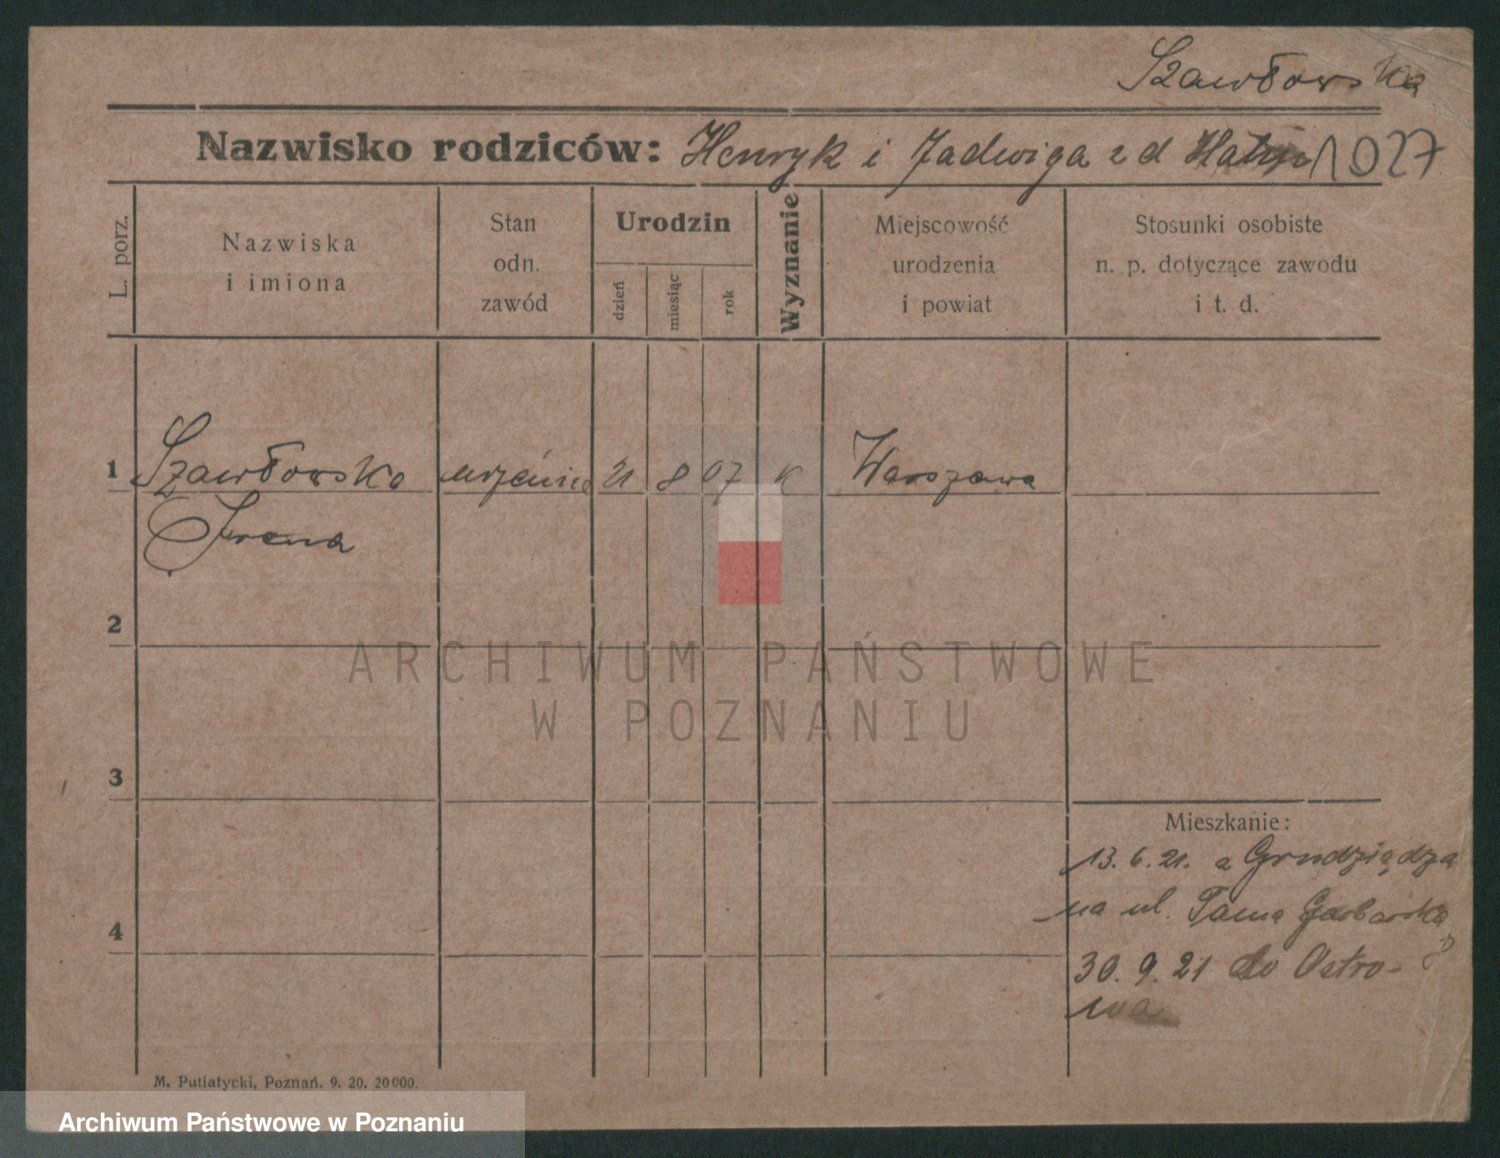 Szawłowska
Nazwisko rodziców: Henryk i Jadwiga z d 1027
L. porz.
Nazwiska
i imiona
Stan
odn.
zawód
Urodzin
dzień
miesiąc
rok
Wyznanie
Miejscowość
urodzenia
i powiat
Stosunki osobiste
n. p. dotyczące zawodu
i t. d.
1 Szawłowska 21 8 07 k Warszawa
Irena
2
ARCHIWUM PAŃSTWOWE
W POZNANIU
3
Mieszkanie:
13. 6. 21. z Grudziądza
na ul. Tama Garbarska
8
4
30. 9. 21 do Ostro-
wa
M. Putiatycki, Poznań. 9. 20. 20000.
Archiwum Państwowe w Poznaniu